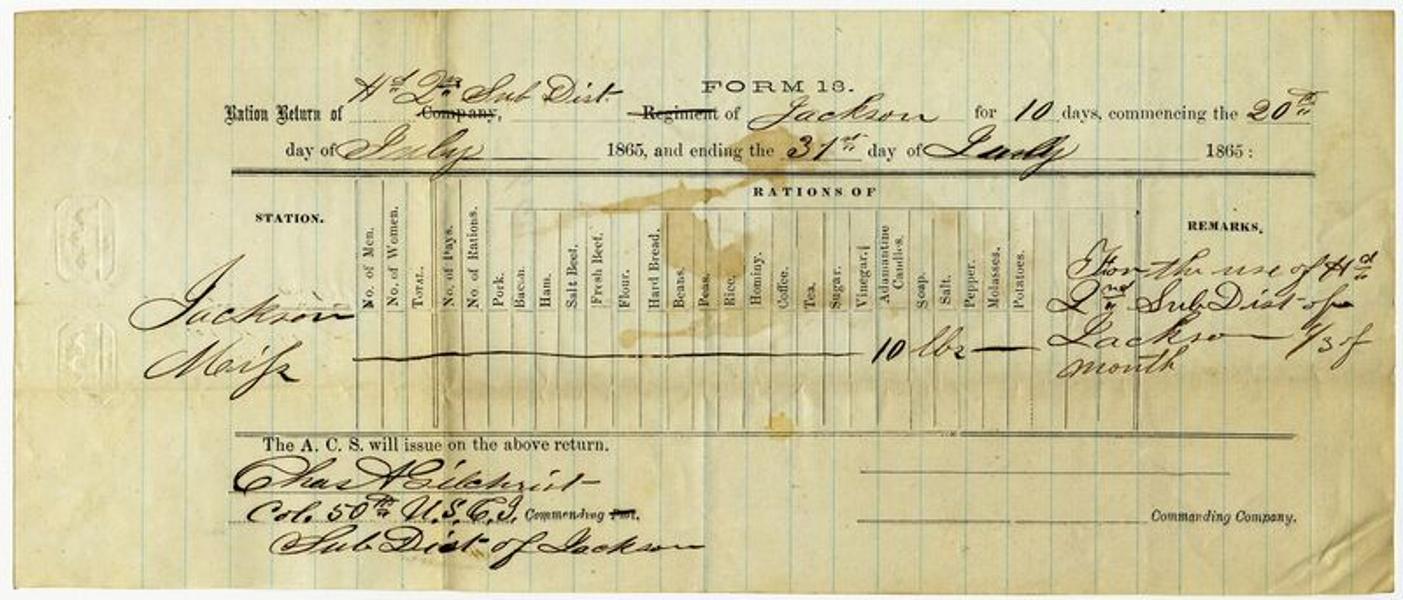 FORM 13.
Ration Return of Hd Qrs Sub Dist. Company, Regiment of Jackson for 10 days, commencing the 20th
day of July 1865, and ending the 31st day of July 1865:
RATIONS OF
STATION.
No. of Men.
No. of Women.
Total.
No. of Days.
No. of Rations.
Pork.
Bacon.
Ham.
Salt Beef.
Fresh Beef.
Flour.
Hard Bread.
Beans.
Peas.
Rice.
Hominy.
Coffee.
Tea.
Sugar.
Vinegar.
Adamantine Candles.
Soap.
Salt.
Pepper.
Molasses.
Potatoes.
REMARKS.
Jackson
Miss
10 lbs
For the use of Hd
Qrs Sub Dist of
Jackson 1/3 of
month
The A. C. S. will issue on the above return.
Chas A Gilchrist
Col. 50th U.S.C.I. Commending Post.
Sub Dist of Jackson
Commanding Company.